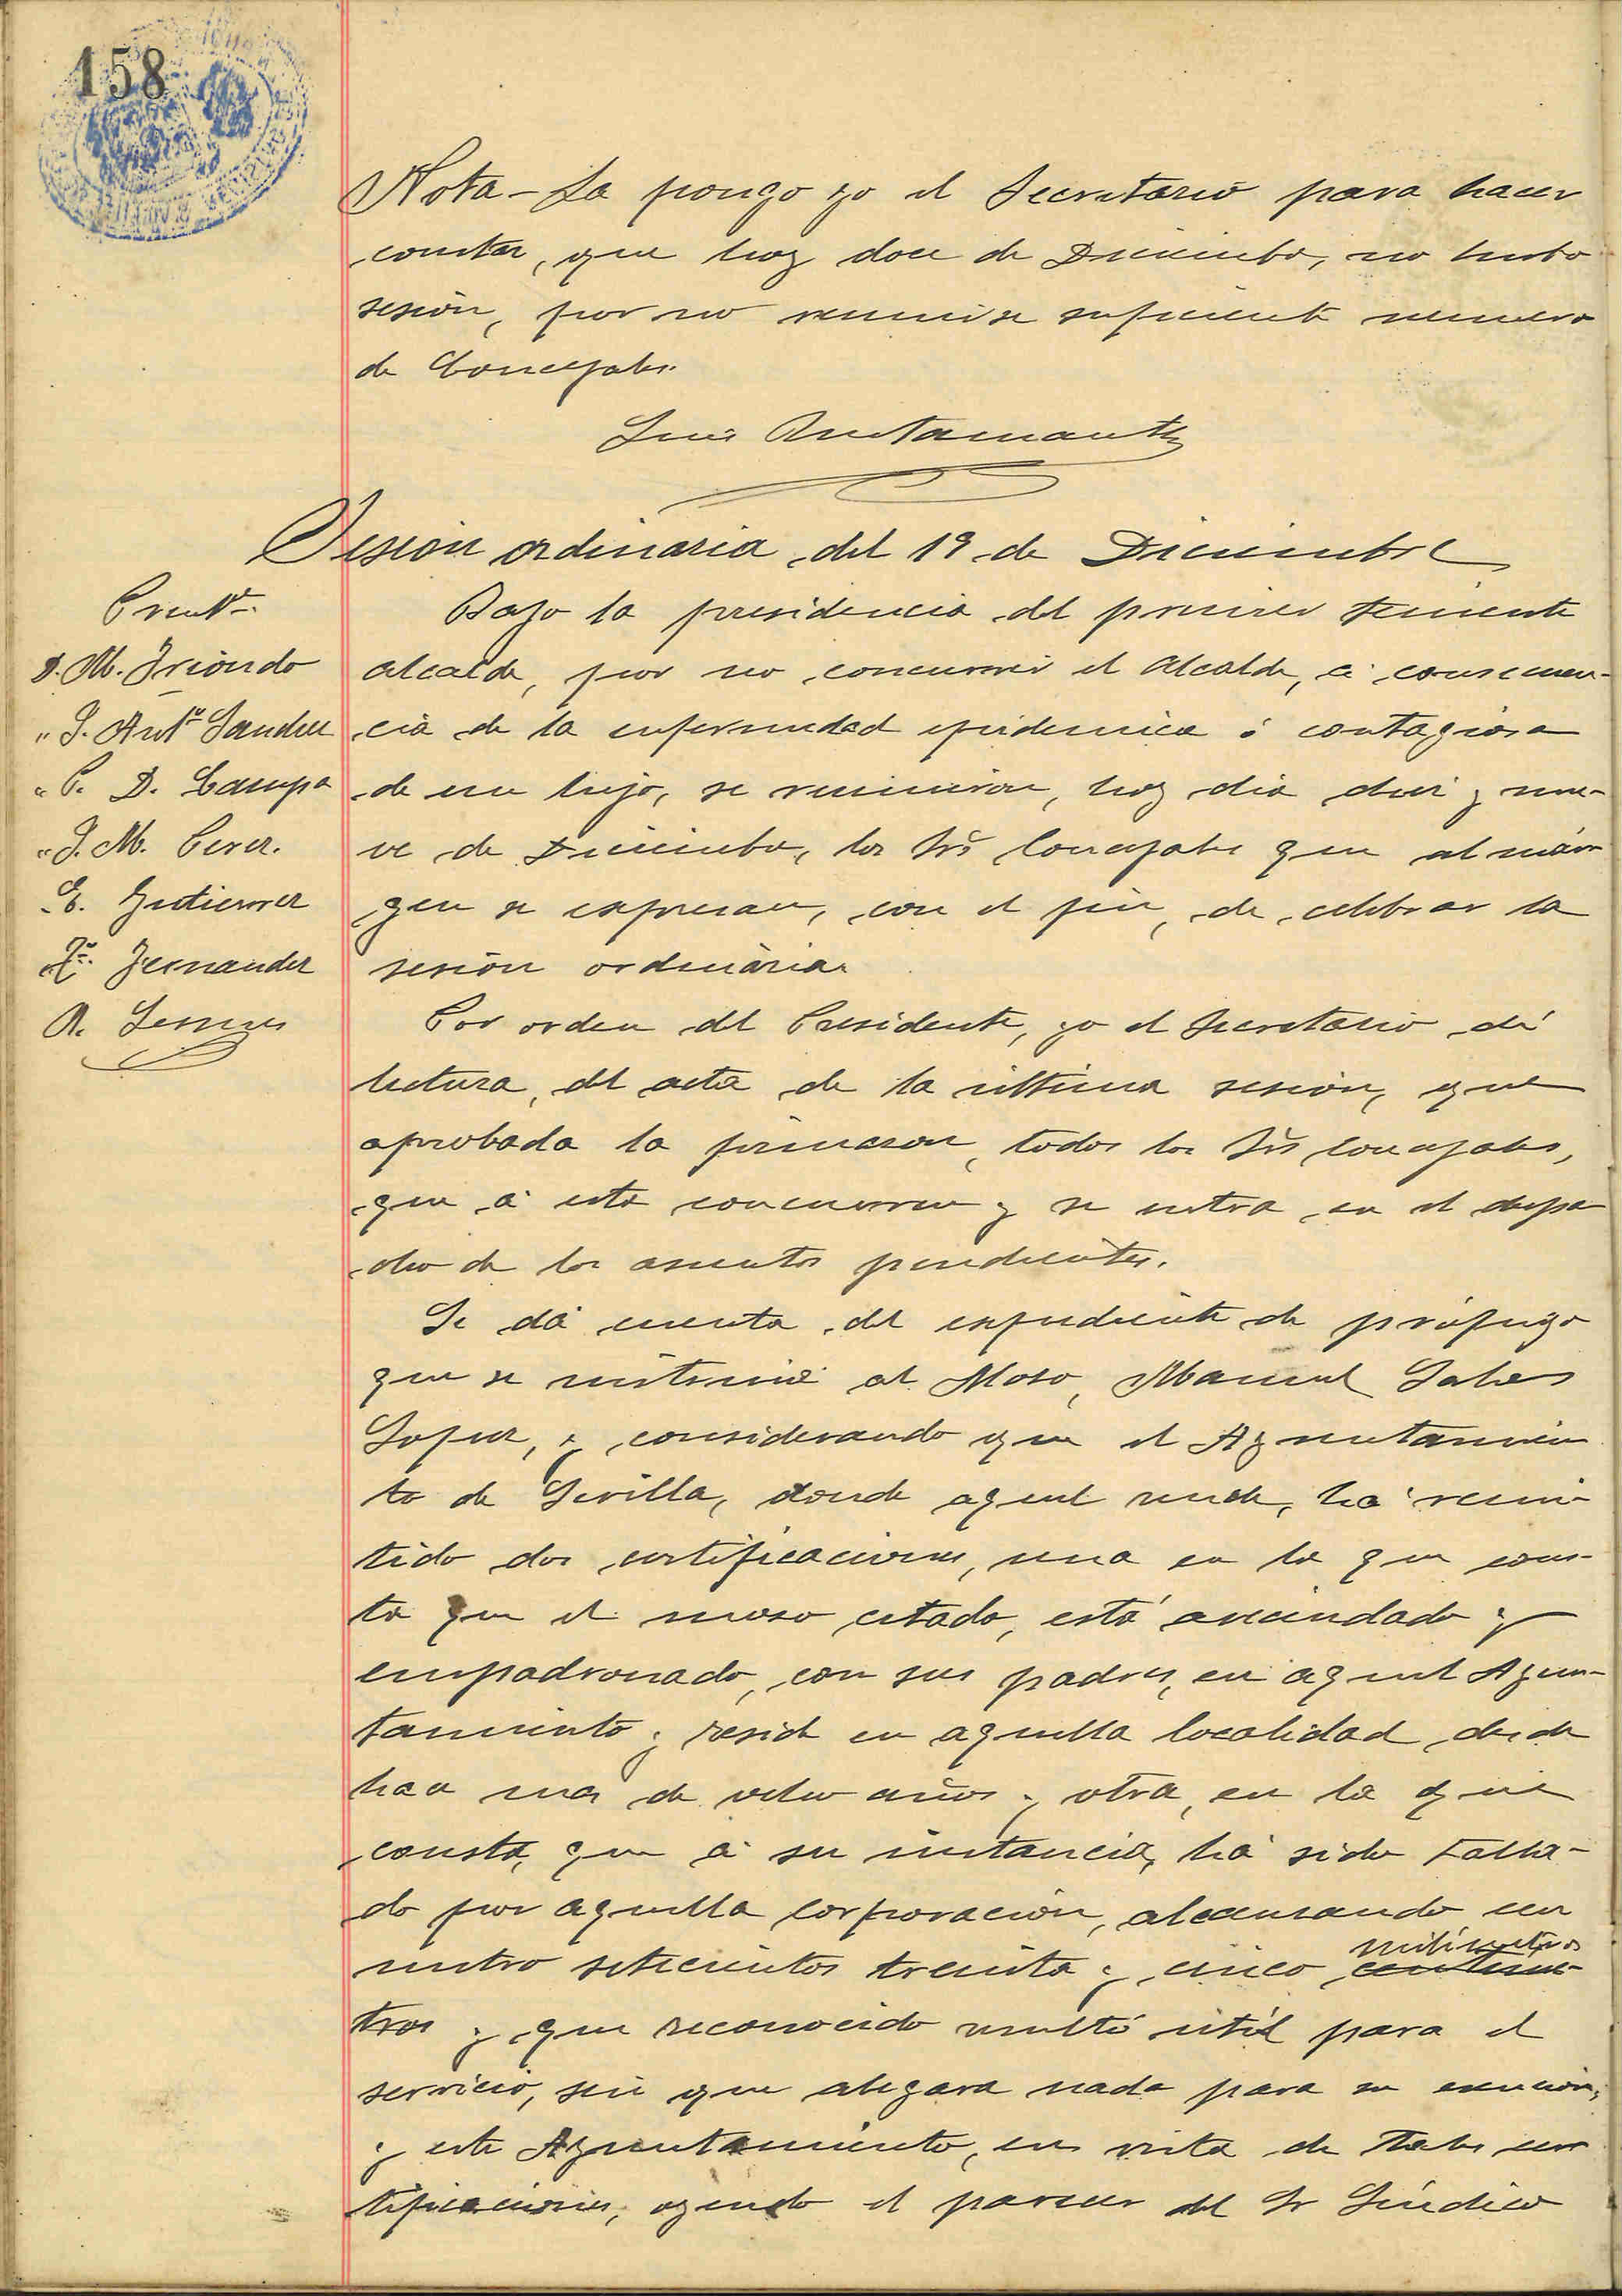 158
Nota - La pongo yo el Secretario para hacer
constar, que hoy doce de Diciembre, no hubo
sesión, por no reunirse suficiente numero
de Concejales.
Luis
Sesion ordinaria del 19 de Diciembre
D. M. Iriondo
" J. Antº Sanchez
" P. D. Campa
" J. M. Perez.
" E. Gutierrez
" Fernandez
Bajo la presidencia del primer teniente
alcalde, por no concurrir el Alcalde, á consecuen-
cia de la enfermedad epidemica ó contagiosa
de un hijo, se reunieron, hoy dia diez y nue-
ve de Diciembre, los Srs Concejales que al már
gen se expresan, con el fin, de celebrar la
sesión ordinaria.
Por orden del Presidente, yo el Secretario dí
lectura, del acta de la ultima sesión, que
aprobada la firmaron, todos los Srs concejales,
que á esta concurren y se entra en el despa
cho de los asuntos pendientes.
Se dá cuenta del expediente de prófugo
que se instruie al Moso, Manuel
Lopez, y considerando que el Ayuntamien
to de Sevilla, donde aquel reside, há remi-
tido dos certificaciones, una en la que cons-
ta que el moso citado, está avecindado y
empadronado, con sus padres, en aquel Ayun-
tamiento y reside en aquella localidad desde
hace mas de ocho años y otra, en la que
consta, que á su instancia, há sido talla-
do por aquella corporación, alcansando un
metro setecientos treinta y cinco centíme- milímetros
tros y que reconocido resultó útil para el
servicio, sin que alegara nada para su exencion,
y este Ayuntamiento, en vista de tales cer
tificaciones, oyendo el parecer del Sr Síndico